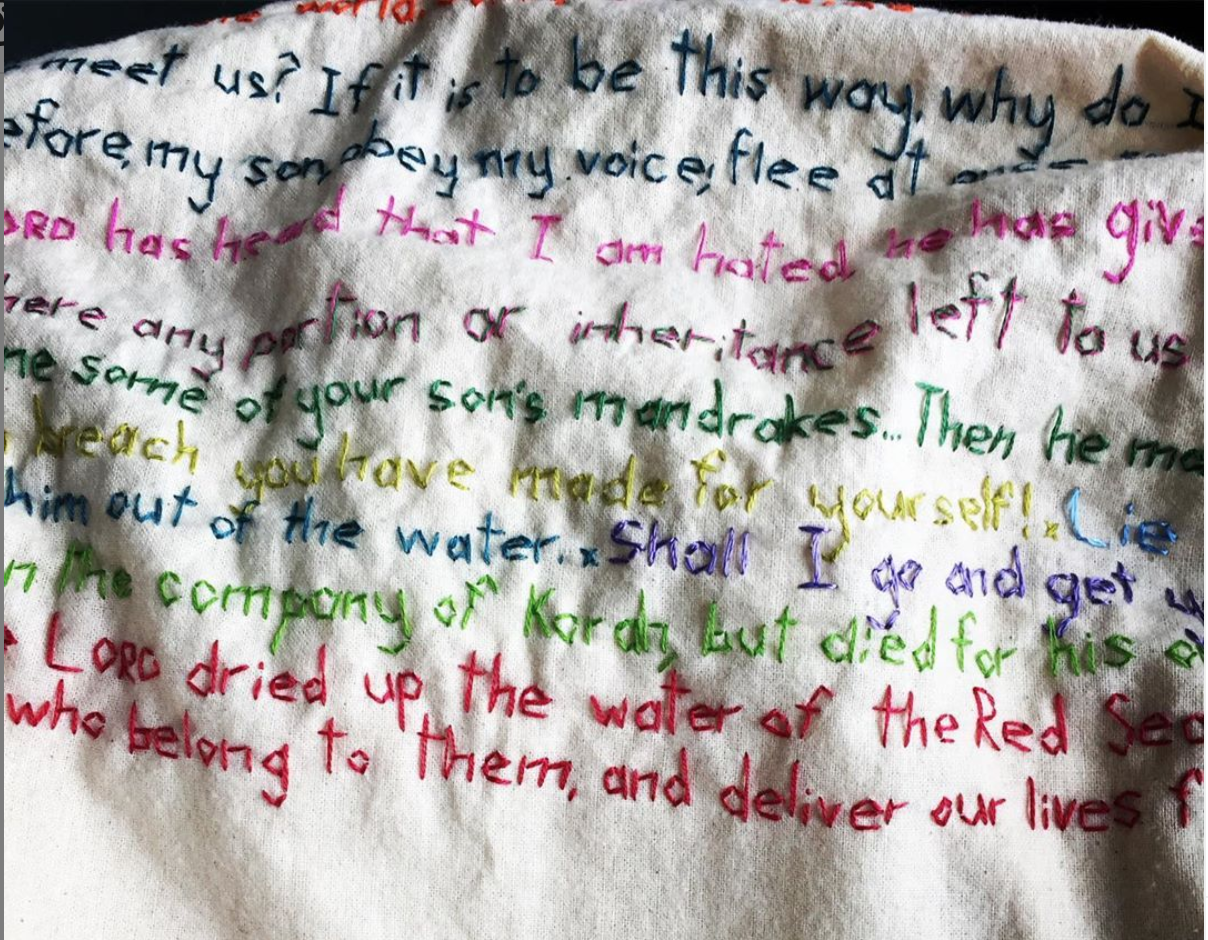 world
meet us? If it is to be this way, why do I
efore, my son, obey my voice; flee at
ORD has heard that I am hated he has give
here any portion or inheritance left to us
me some of your son's mandrakes... Then he ma
breach you have made for yourself! x Lie
him out of the water. x Shall I go and get
n the company of Korah, but died for his o
LORD dried up the water of the Red Sea
who belong to them, and deliver our lives f